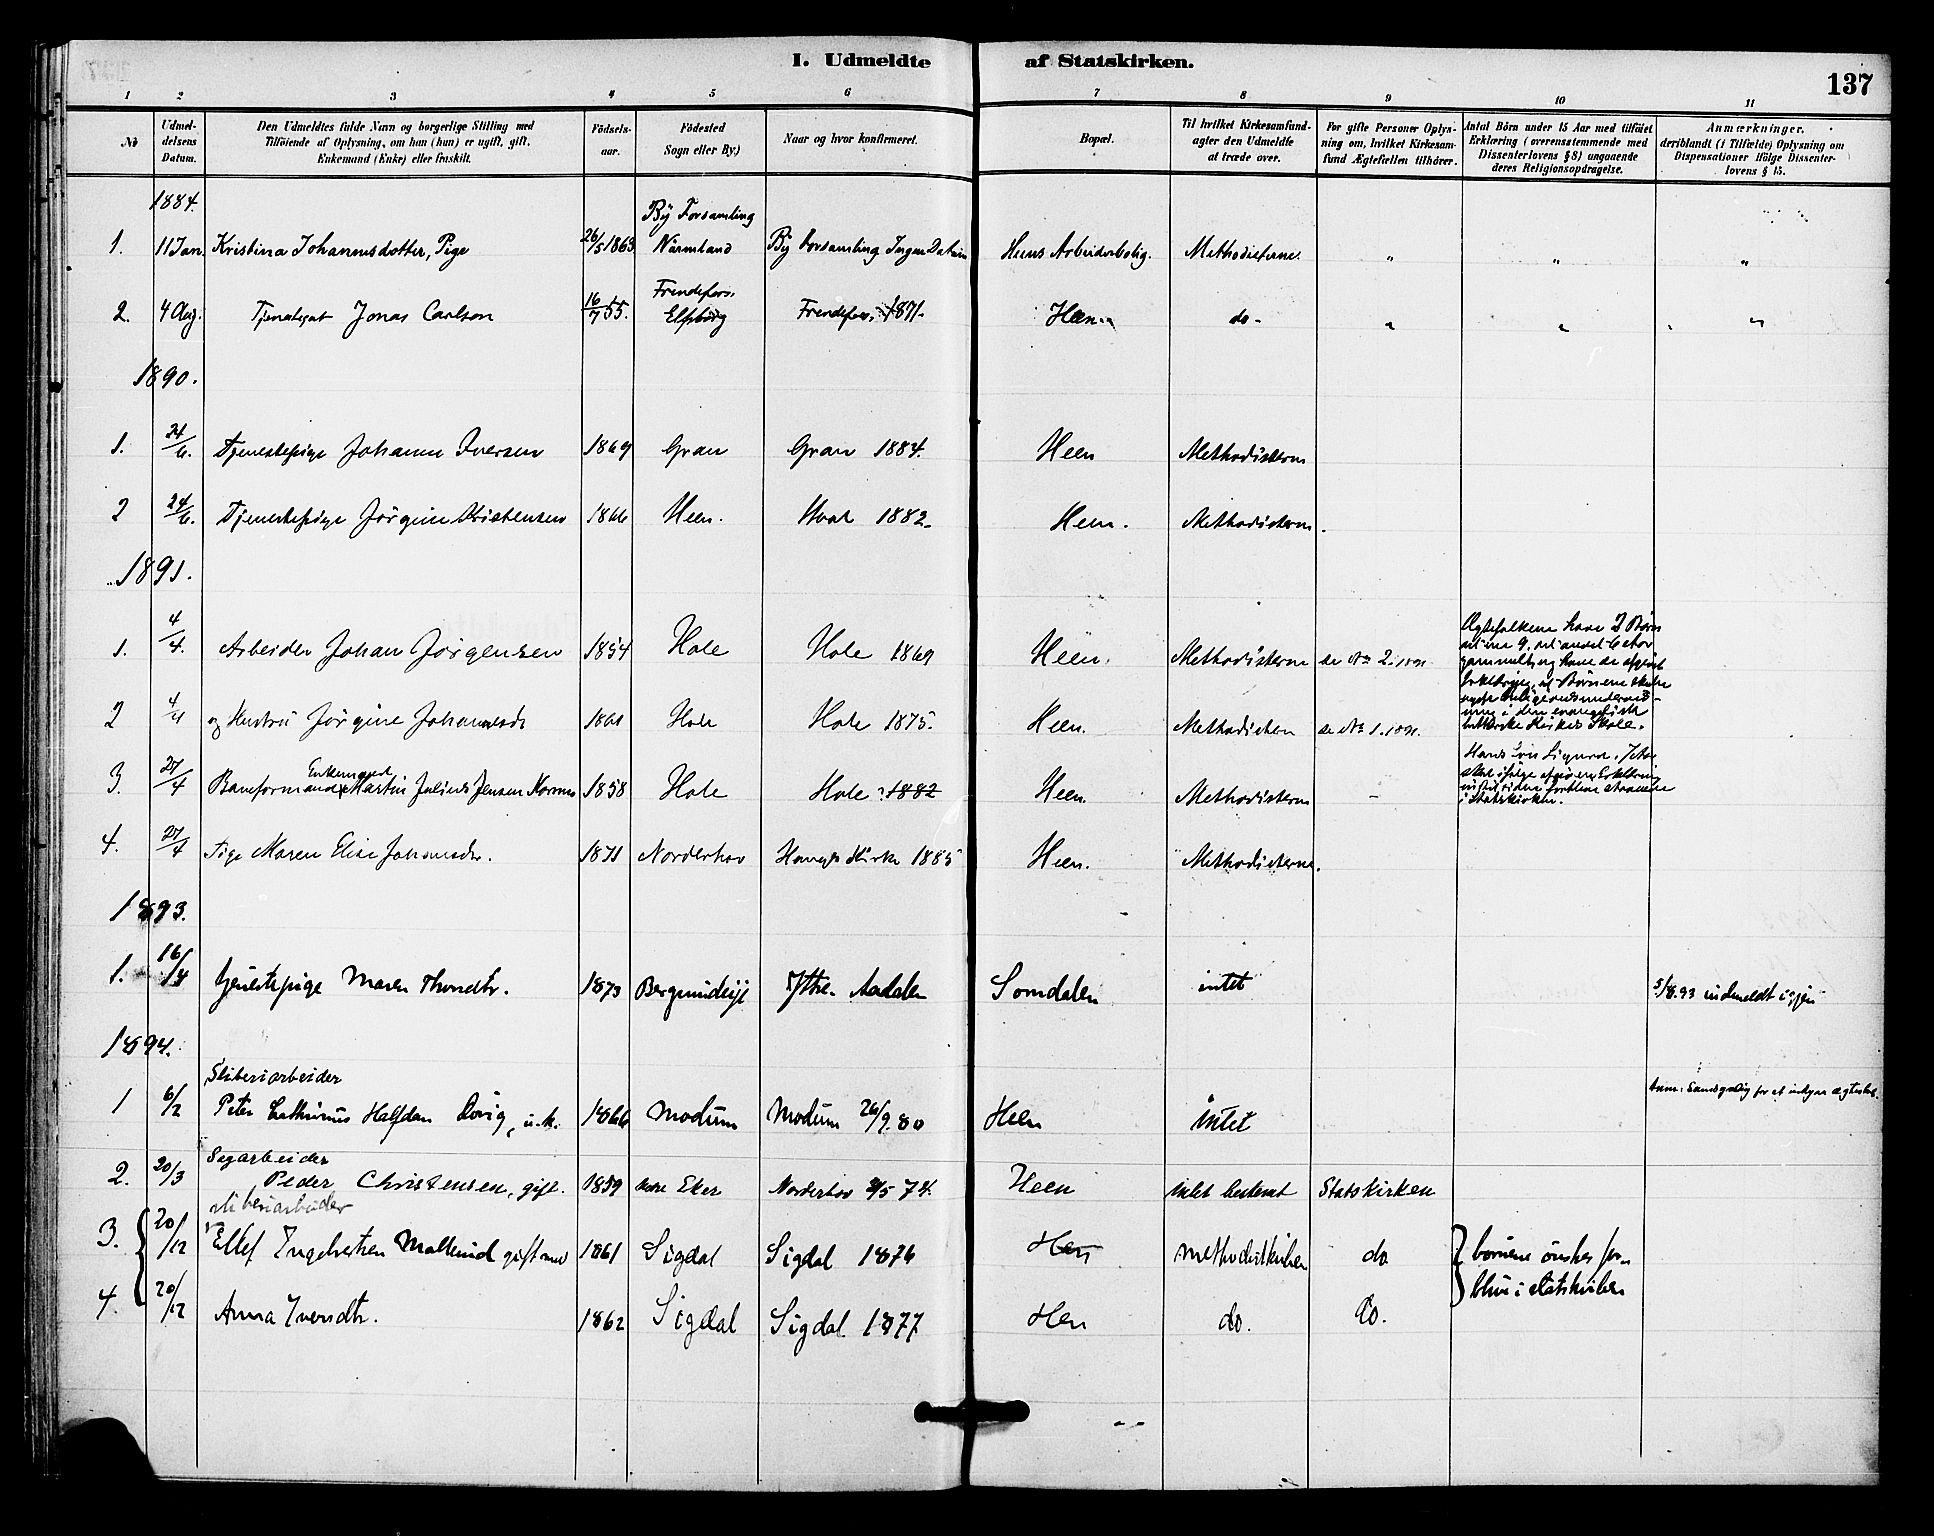 I. Udmeldte af Statskirken.
137
1 2 3 4 5 6 7 8 9 10 11
No
Udmel-
delsens
Datum.
Den Udmeldtes fulde Navn og borgerlige Stilling med
Tilföiende af Oplysning, om han (hun) er ugift, gift,
Enkemand (Enke) eller fraskilt.
Födsels-
aar.
Födested
Sogn eller By.)
Naar og hvor konfirmeret.
Bopæl.
Til hvilket Kirkesamfund-
agter den Udmeldte
at træde over.
For gifte Personer Oplys-
ning om, hvilket Kirkesam-
fund Ægtefællen tilhörer.
Antal Börn under 15 Aar med tilföiet
Erklæring (overensstemmende med
Dissenterlovens § 8) angaaende
deres Religionsopdragelse.
Anmærkninger,
deriblandt (i Tilfælde) Oplysning om
Dispensationer ifölge Dissenter-
lovens § 15.
1884.
By Forsamling
1. 11 Jan. Kristina Johannesdotter, Pige 26/5 1863 Värmland By Forsamling Ingen Datum Heens Arbeiderbolig. Methodisterne. " " "
Frendefors.
2. 4 Aug. Tjenestegut Jonas Carlson 16/7 55. Elfsborg Frendefors. 1871. Heen do - " " "
1890.
1. 24/6. Tjenestepige Johanne Iversen 1869 Gran Gran 1884. Heen Methodisterne
2 24/6. Tjenestepige Jörgine Kristensen 1866 Heen. Hval 1882. Heen. Methodisterne.
1891.
1. 4/4. Arbeider Johan Jörgensen 1854 Hole Hole 1869 Heen. Methodisterne se No 2. 1891.
Ægtefolkene have 2 Børn
det ene 9, det andet 6 Aar
gammelt, og have de afgivet
Erklæring, at Børnene skulle
nyde Religionsundervis-
ning i den evangelisk
lutherske Kirkes Skole.
2 4/4 og Hustru Jörgine Johannesdr 1861 Hole Hole 1875. Heen. Methodisterne se No 1. 1891.
Enkemand
3. 27/4 Bomformand Martin Julius Jensen 1858 Hole Hole 1882 Heen. Methodisterne -
Hans Søn Sigurd, 7 Aar
skal ifølge afgiven Erklæring
indtil videre forblive staaende
i Statskirken.
4. 27/4 Pige Maren Elise Johansdr. 1871 Norderhov Haugs Kirke 1885 Heen. Methodisterne.
1893.
1. 16/4 Tjenestepige Maren Thorsdtr. 1873 Ytre Aadalen Somdalen intet 5/8.93 indmeldt igjen
1894.
Sliberiarbeider
1 6/2 Peter Halfdan 1866 Modum Modum 26/9.80 Heen intet
Sagarbeider
2. 20/3 Peder Christensen, gift. 1859 Eker Norderhov 74. Heen intet bestemt Statskirken
Sliberiarbeider
3. 20/12 Ellef Engebretsen gift med 1861 Sigdal Sigdal 1876 Hen methodistkirken do
4. 20/12 Anna Iversdtr. 1862 Sigdal Sigdal 1877 Hen do. do.
børnene ønskes for-
blive i statskirken